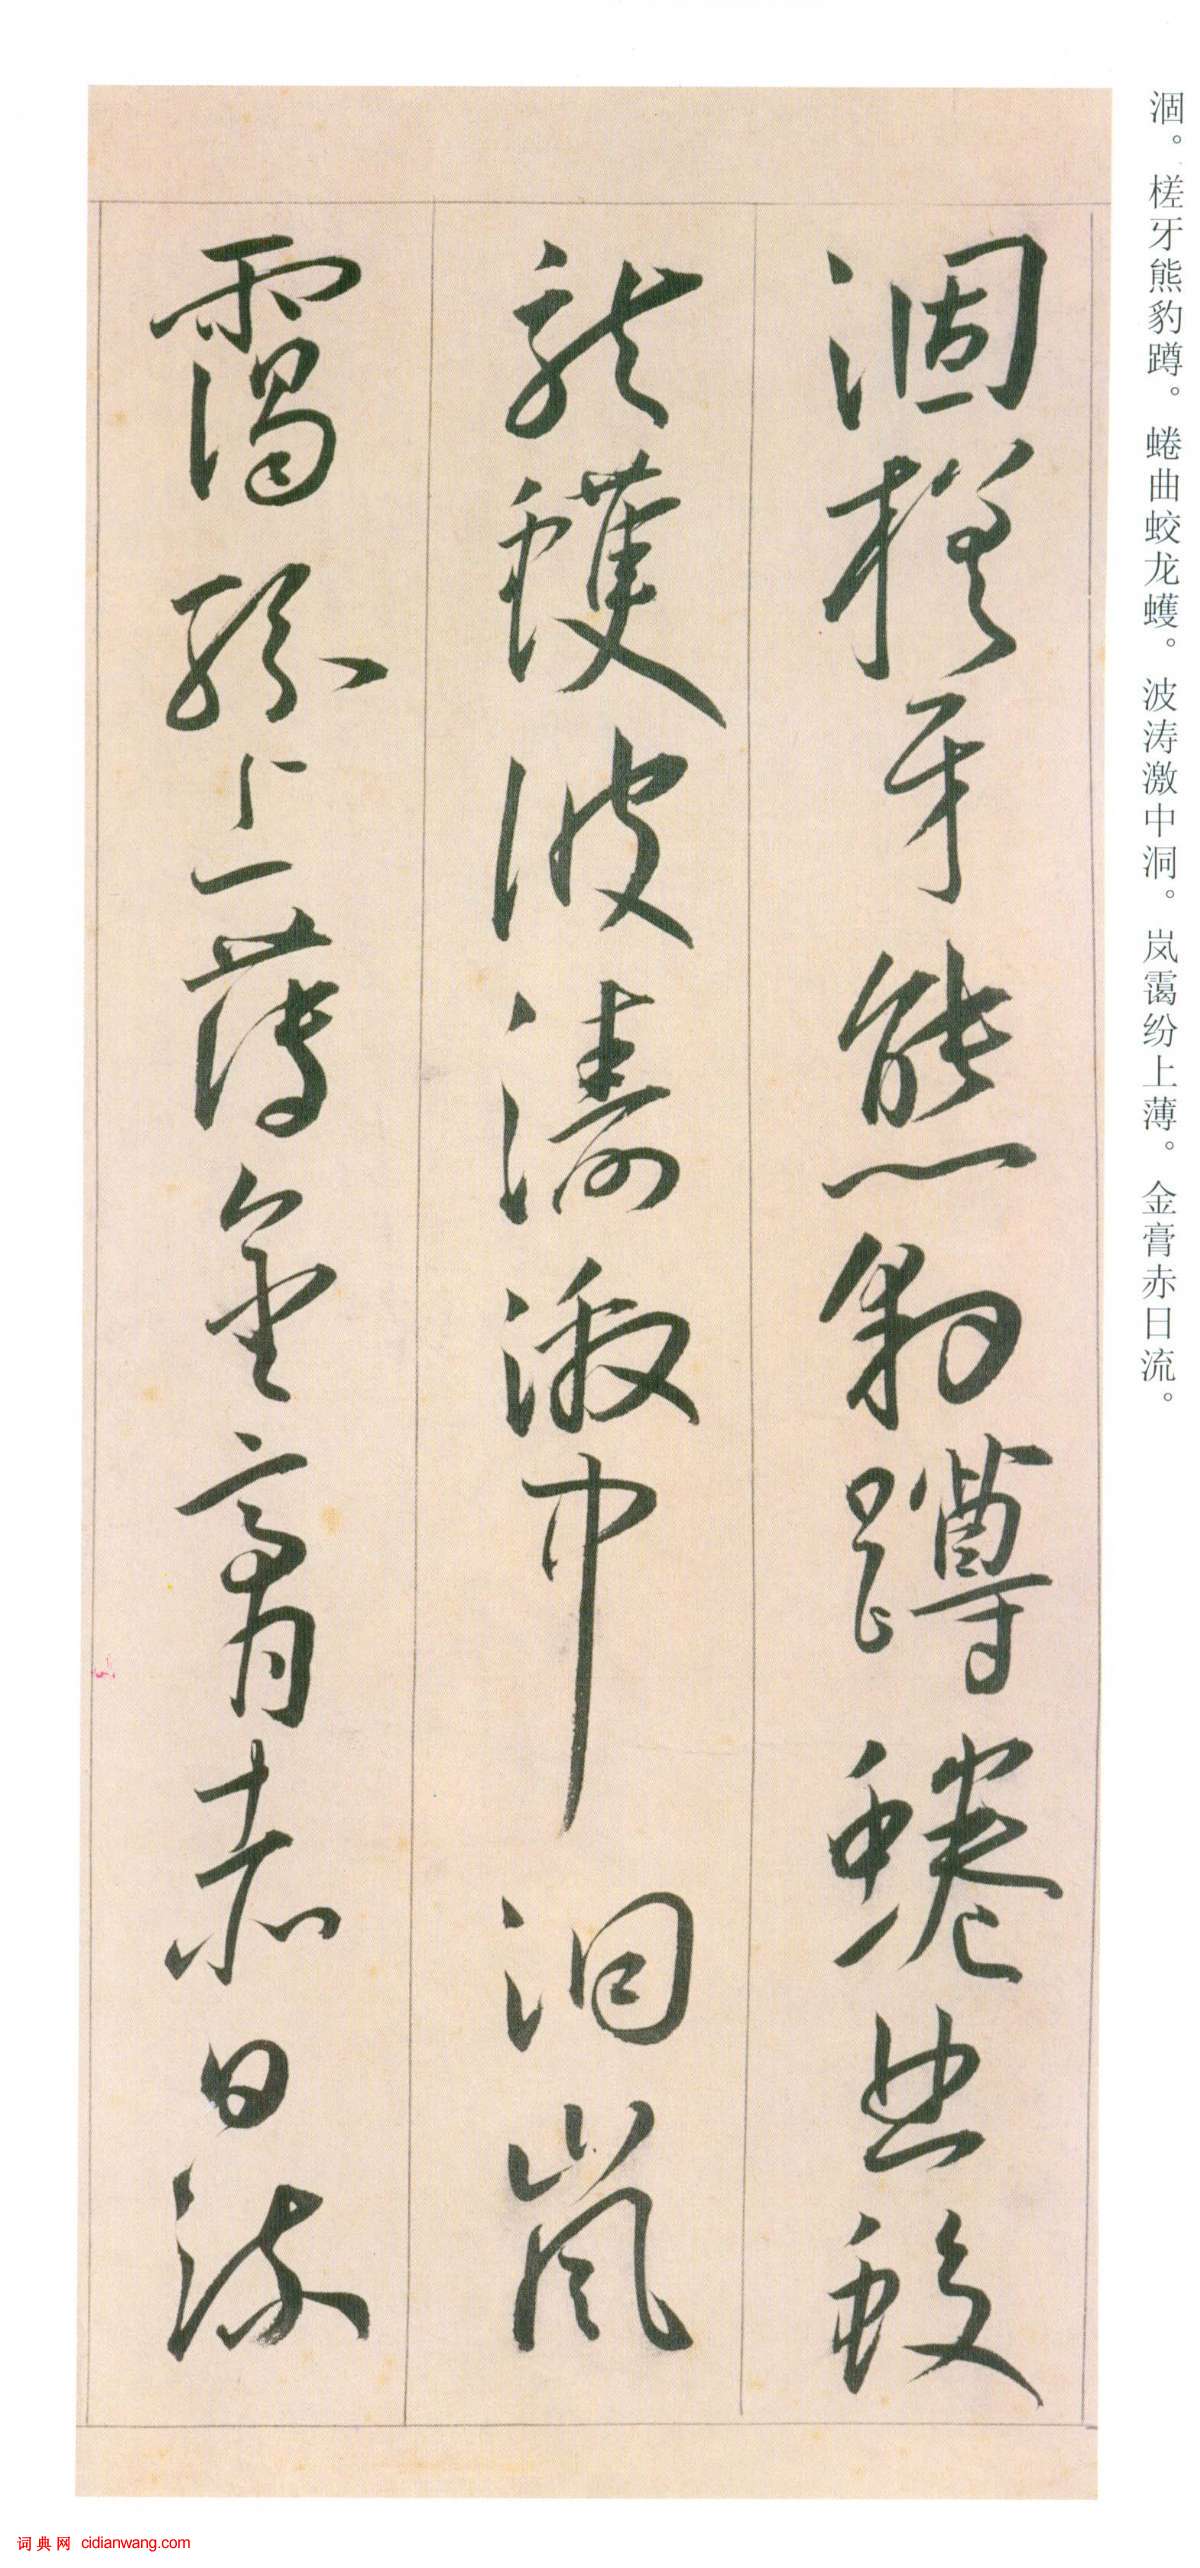 涸。槎牙熊豹蹲。蜷曲蛟龙蠖。波涛激中洞。岚霭纷上薄。金膏赤日流。
涸槎牙熊豹蹲蜷曲蛟
龍蠖波濤激中洞嵐
靄紛上薄金膏赤日流
词典网 cidianwang.com